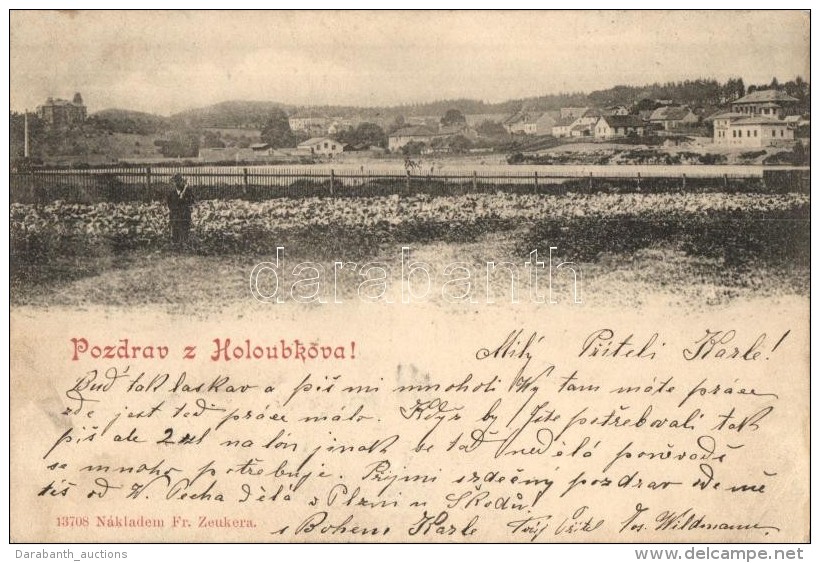 darabanth
Pozdrav z Holoubkova!
Milý Příteli Karle!
Buď tak laskav a piš mi mnoholi Wy tam máte práce
zde jest teď práce málo. Když by Jste potřebovali tak
piš ale 2 na lón jinak be taď nedělá poněvadč
se mnoho potřebuje. Přijmi srdečný pozdrav ode mě
též od W. Pecha dělá v Plzni u Škodů!
s Bohem Karle Tvůj Přítel Jos. Wildmann.
13708 Nákladem Fr. Zeukera.
Darabanth_auctions
http://www.delcampe.net